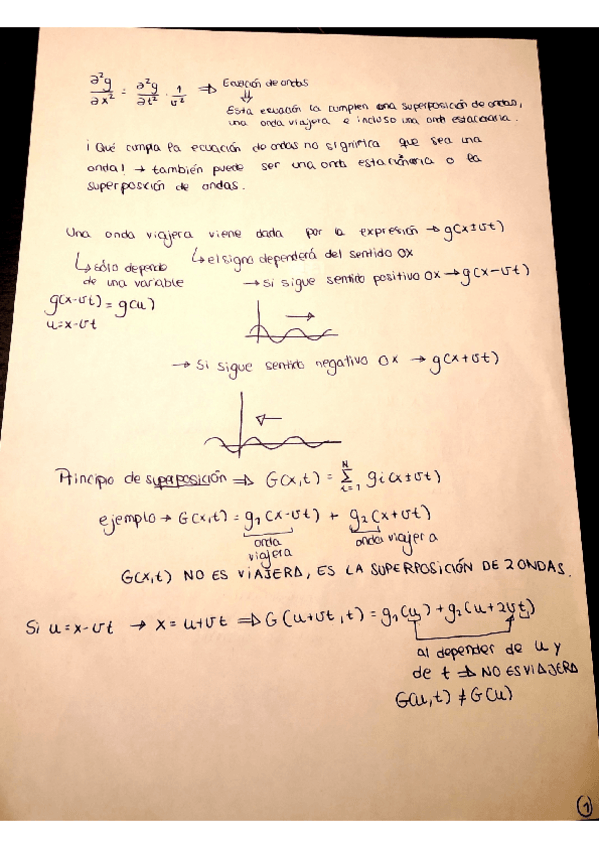 ∂²g/∂x² = ∂²g/∂t² · 1/v² ⇒ Ecuación de ondas
⇓
Esta ecuación la cumplen una superposición de ondas,
una onda viajera e incluso una onda estacionaria.
¡Qué cumpla la ecuación de ondas no significa que sea una
onda! → también puede ser una onda estacionaria o la
superposición de ondas.
Una onda viajera viene dada por la expresión → g(x±vt)
↳ sólo depende de una variable
g(x-vt) = g(u)
u=x-vt
↳ el signo dependerá del sentido OX
→ si sigue sentido positivo OX → g(x-vt)
→ Si sigue sentido negativo OX → g(x+vt)
Principio de superposición ⇒ G(x,t) = Σ i=1 N gi(x±vt)
ejemplo → G(x,t) = g₁(x-vt) + g₂(x+vt)
onda viajera
onda viajera
G(x,t) NO ES VIAJERA, ES LA SUPERPOSICIÓN DE 2 ONDAS.
Si u=x-vt → x=u+vt ⇒ G(u+vt,t) = g₁(u) + g₂(u+2vt)
al depender de u y
de t ⇒ NO ES VIAJERA
G(u,t) ≠ G(u)
1